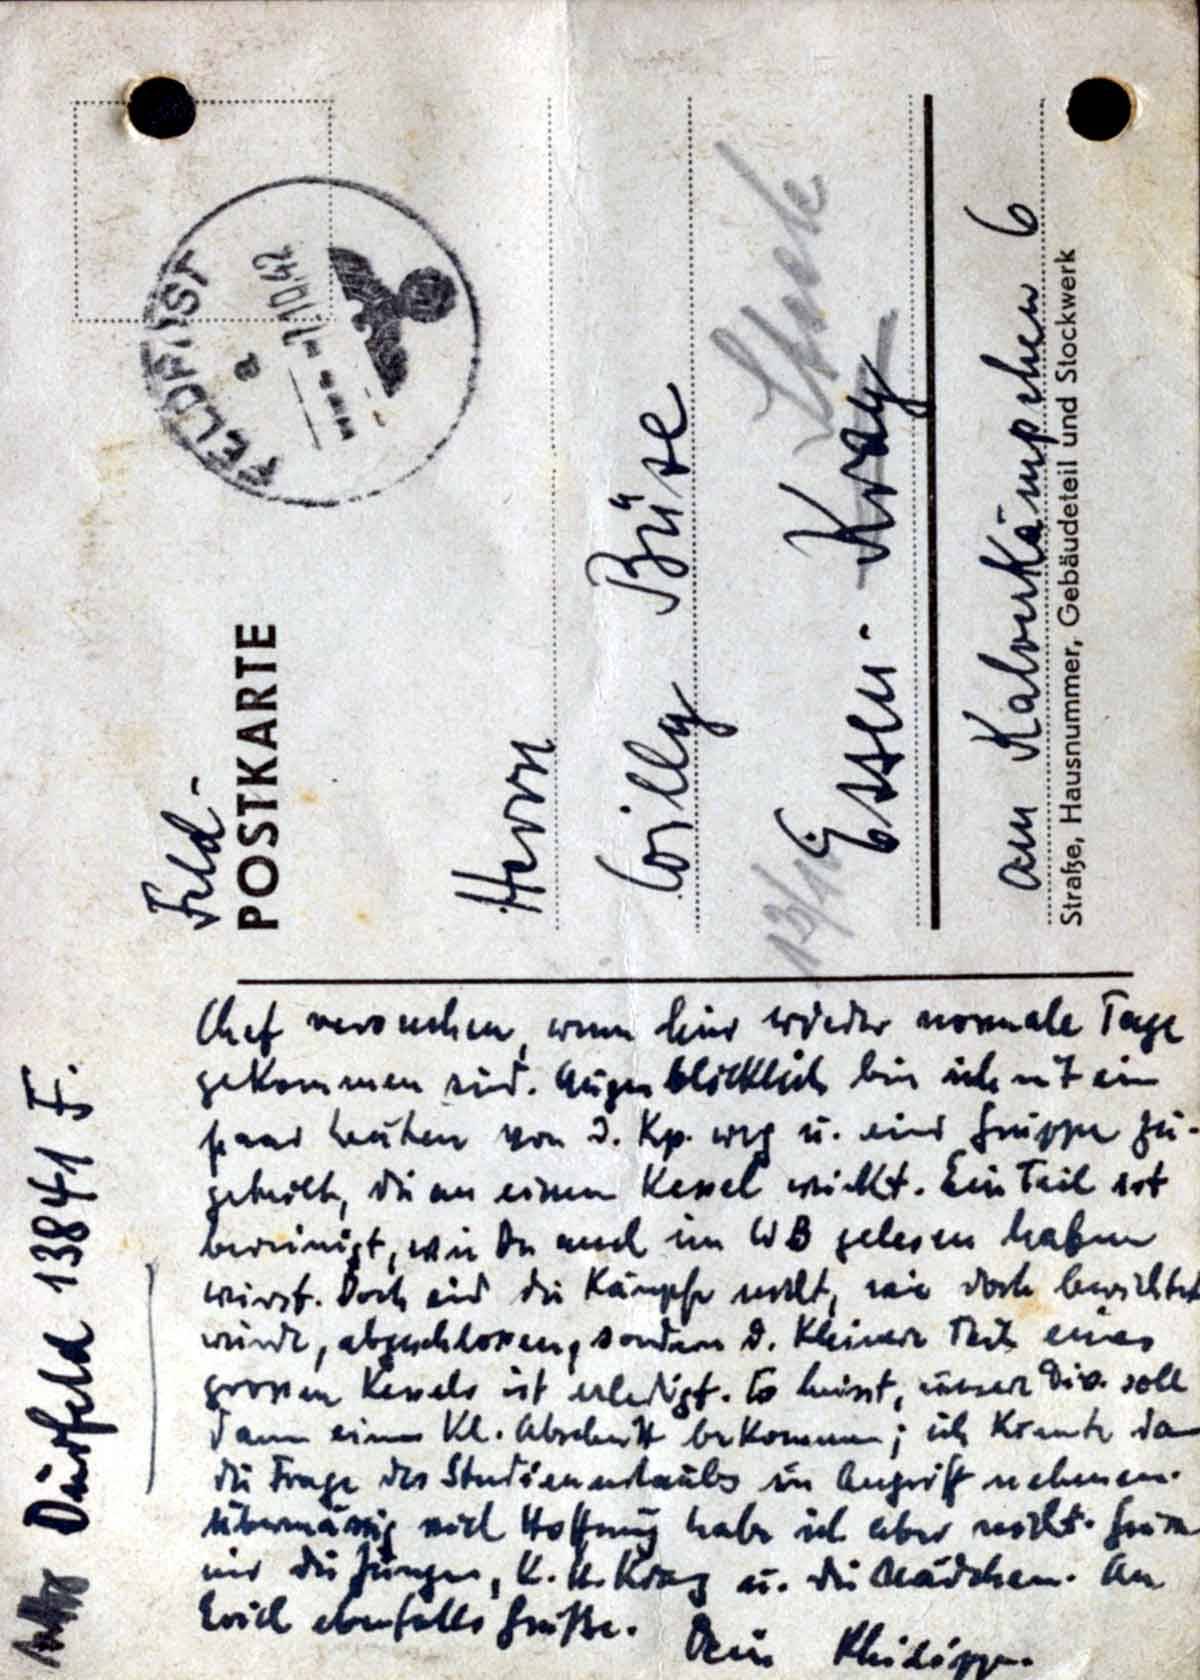 Feld-
POSTKARTE
FELDPOST
a
10.42
Herrn
Willy Büse
Essen - Kray
13/10
am Kalverkämpchen 6
Straße, Hausnummer, Gebäudeteil und Stockwerk
Dürfeld 13841 F.
Chef versuchen, wenn hier wieder normale Tage
gekommen sind. Augenblicklich bin ich mit ein
paar Leuten von d. Kp. weg u. einer Gruppe zu-
geteilt, die an einem Kessel wirkt. Ein Teil ist
bereinigt, wie Du auch im WB gelesen haben
wirst. Doch sind die Kämpfe nicht, wie doch berichtet
wurde, abgeschlossen, sondern d. kleinere Teil eines
grossen Kessels ist erledigt. Es heisst, unsere Div. soll
dann einen Kl. Abschnitt bekommen; ich könnte da
die Frage des Studienurlaubs in Angriff nehmen.
Übermässig viel Hoffnung habe ich aber nicht. Grüss
mir die Jungen, K. H. Krag u. die Mädchen. An
Erich ebenfalls Grüße.
Dein Philipp.